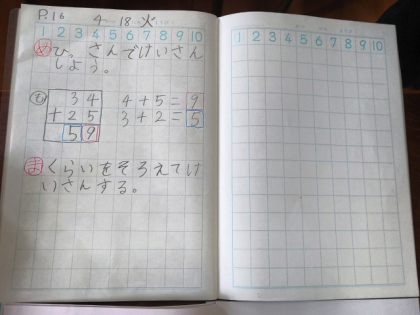 P.16 4-18 火
1 2 3 4 5 6 7 8 9 10
め ひっさんでけいさん
しよう。
も 34 4+5=9
+25 3+2=5
59
ま くらいをそろえてけ
いさんする。
1 2 3 4 5 6 7 8 9 10